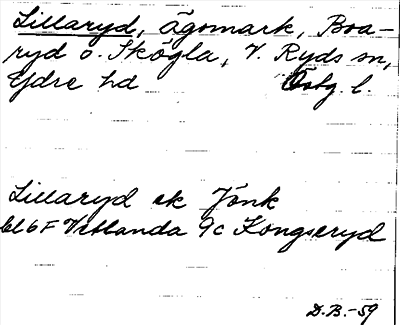 Lillaryd, ägomark, Boa-
ryd o. Skögla, V. Ryds sn,
Ydre hd Östg. l.
Lillaryd ek Jönk
bl 6F Vetlanda 9c Kongseryd
D.B.-59